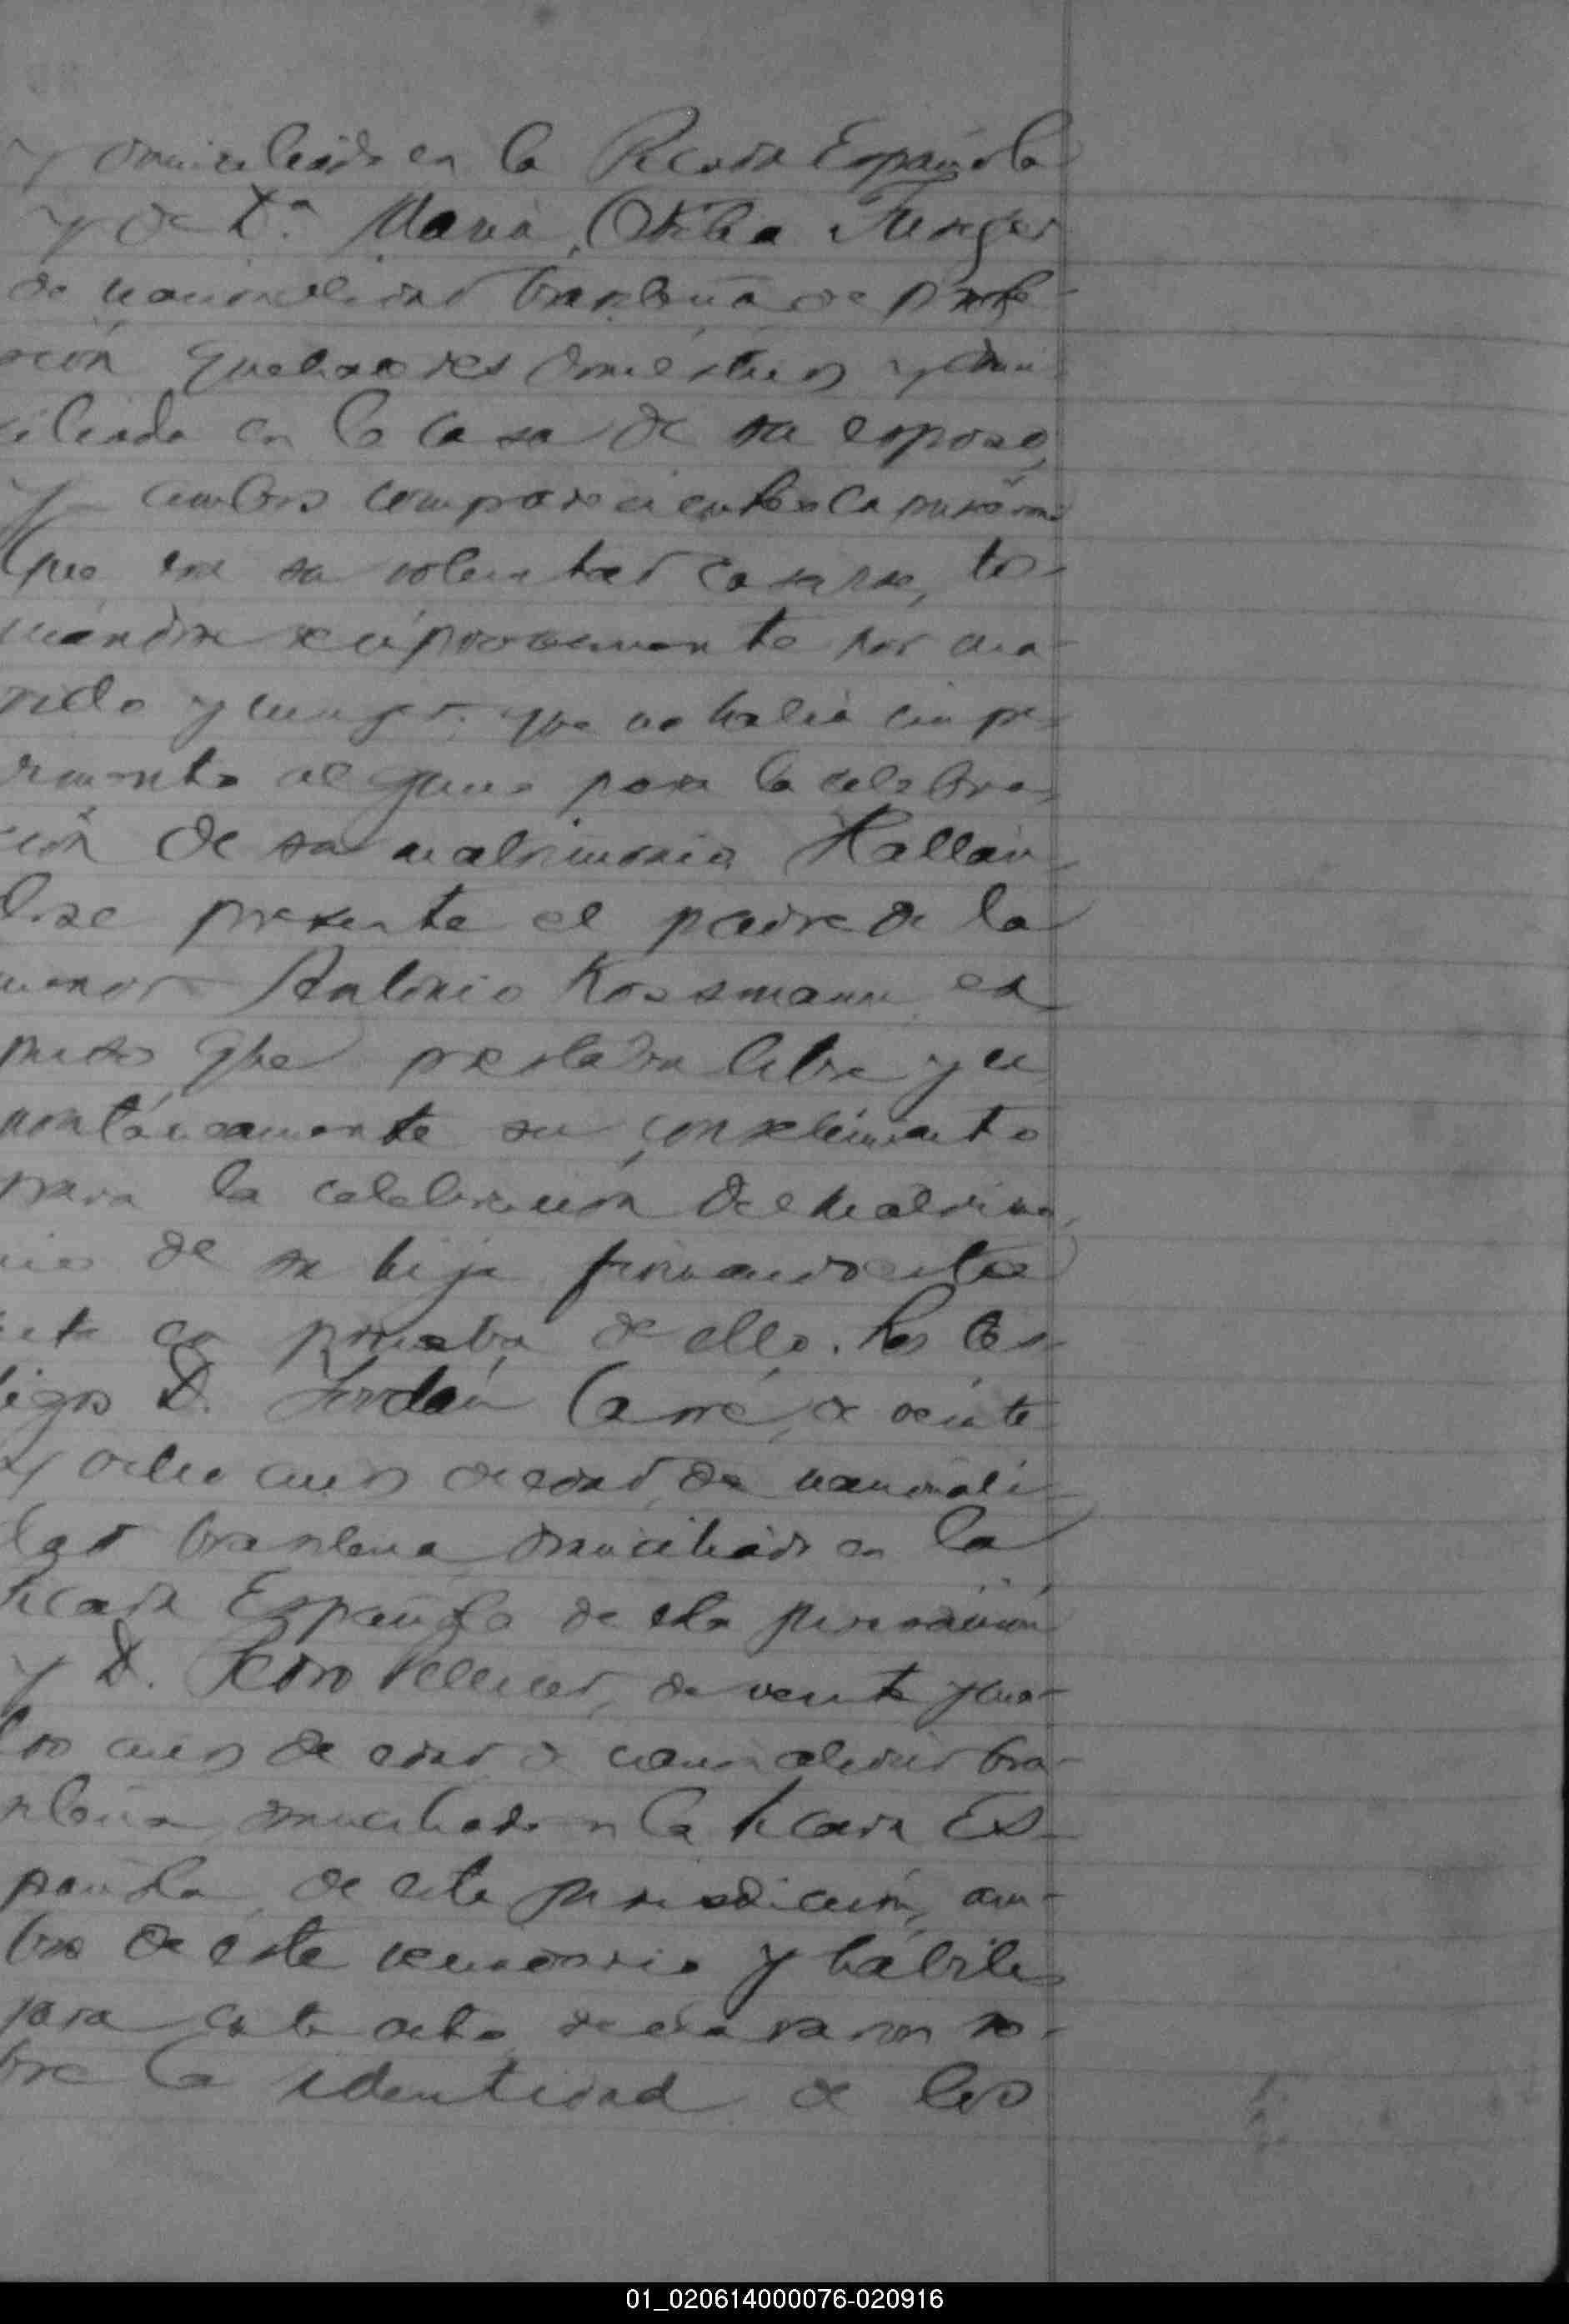 y domiciliado en la Picada Española
y de Dª. María Otilia Junges
de nacionalidad brasileña de profe-
sión quehaceres domésticos y domi-
ciliada en la casa de su esposo,
y ambos comparecientes
que era su voluntad casarse, to-
mándose recíprocamente por ma-
rido y mujer, que no había impe-
dimento alguno para la celebra-
ción de su matrimonio. Hallán-
dose presente el padre de la
menor Antonio Kossmann, ex
puso que prestaba libre y es
pontáneamente su consentimiento
para la celebración del matrimo
nio de su hija firmando este
acta en prueba de ello. Los tes-
tigos D. Jordán Carré, de veinte
y ocho años de edad, de nacionali-
dad brasilena domiciliado en la
Picada Española de esta jurisdicción
y D. Pedro de veinte y cua-
tro años de edad de nacionalidad bra-
sileña domiciliado en la Picada Es-
pañola, de esta jurisdicción, am-
bos de este vecindario y hábiles
para este acto, declararon so-
bre la identidad de los
01_020614000076-020916